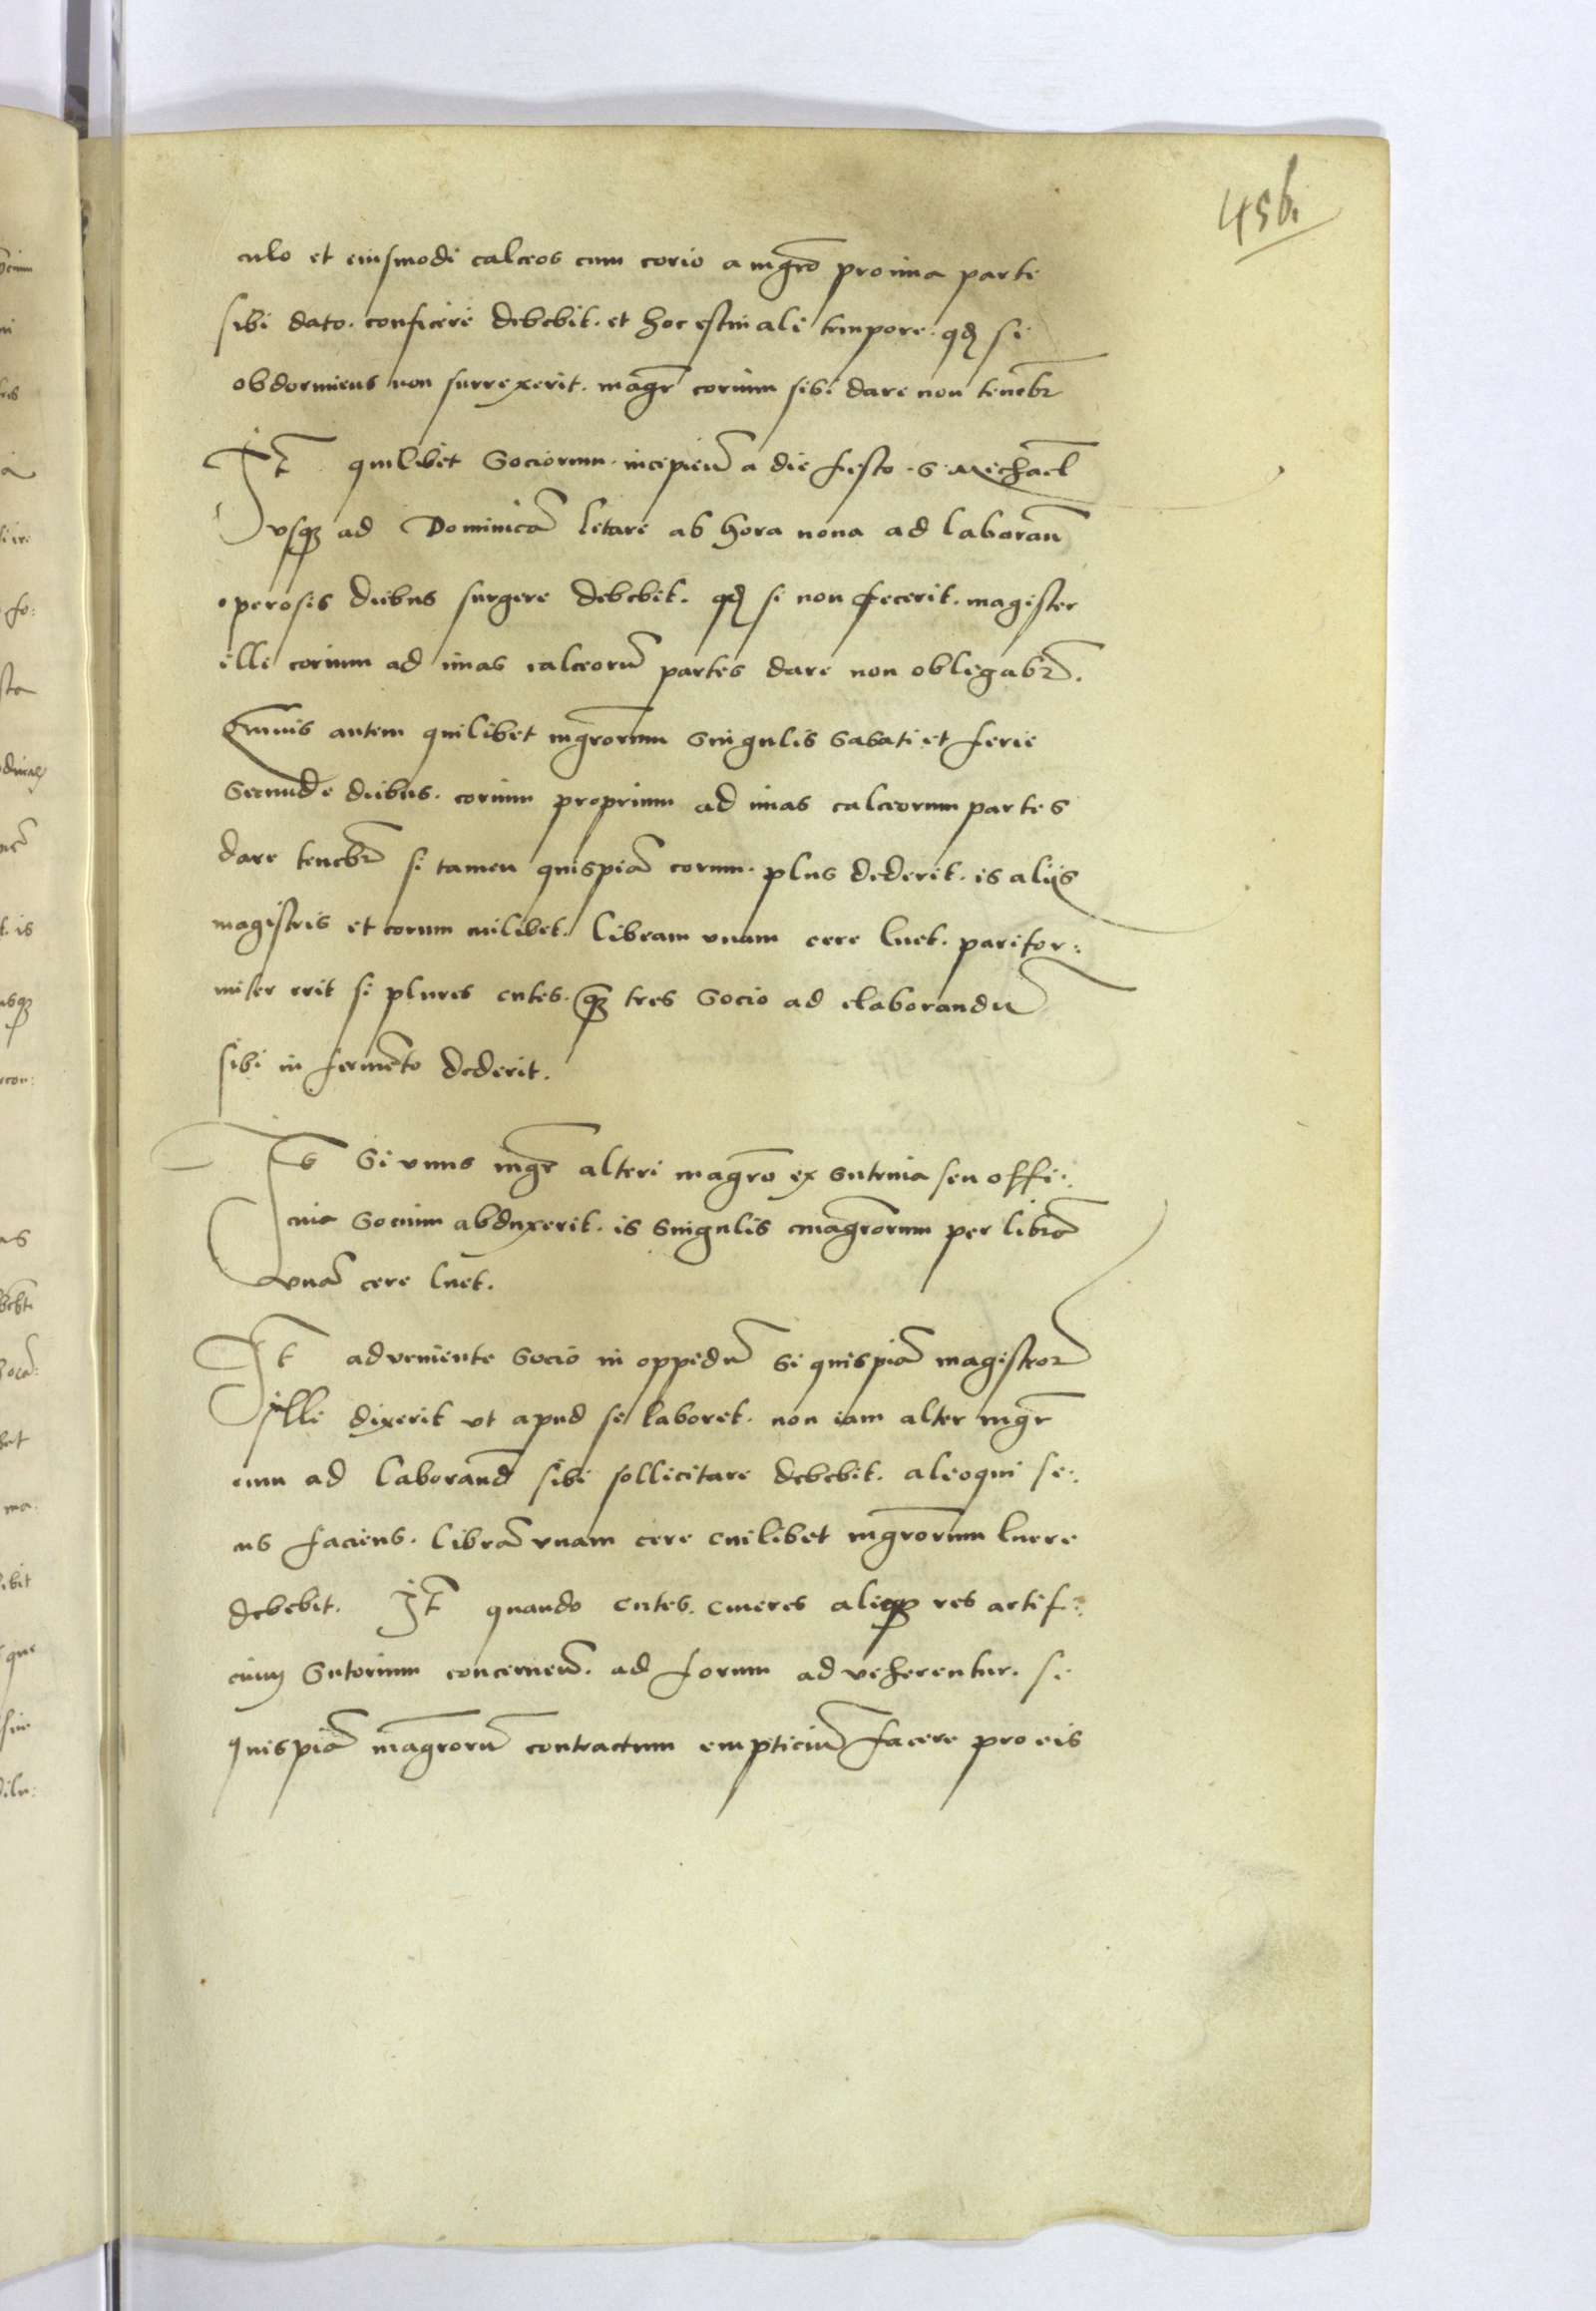 456.
culo et eiusmodi calceos cum corio a mgro pro ima parte
sibi dato. conficere debebit. et hoc estiuali tempore. qd si
obdormiens non surrexerit. magr corium sibi dare non tenebr
It quilibet Sociorum. incipien a die festo. S. Michael
vsq ad Dominica letare ab hora nona ad laboran
operosis diebus surgere debebit. qd si non fecerit. magister
ille corium ad imas calceoru partes dare non obligabr.
Quis autem quilibet mgrorum Singulis Sabati et ferie
Secunde diebus. corium proprium ad imas calceorum partes
dare tenebr si tamen quispia eorum. plus dederit. is aliis
magistris et eorum cuilibet. libram vnam cere luet. parifor:
miter erit si plures cutes. q tres Socio ad elaborandu
sibi in fermento dederit.
It Si vnus mgr alteri magro ex Sutrina seu offi:
cina Socium abduxerit. is Singulis magrorum per libra
vna cere luet.
It adveniente Socio in oppidu Si quispia magistror
illi dixerit vt apud se laboret. non iam alter mgr
eum ad laborand sibi sollicitare debebit. alioqui se:
cus faciens. libra vnam cere cuilibet mgrorum luere
debebit. It quando cutes. cineres alieq res artifi:
cium Sutorium concernen. ad forum adveherentur. si
quispia magroru contractum empticiu facere pro eis